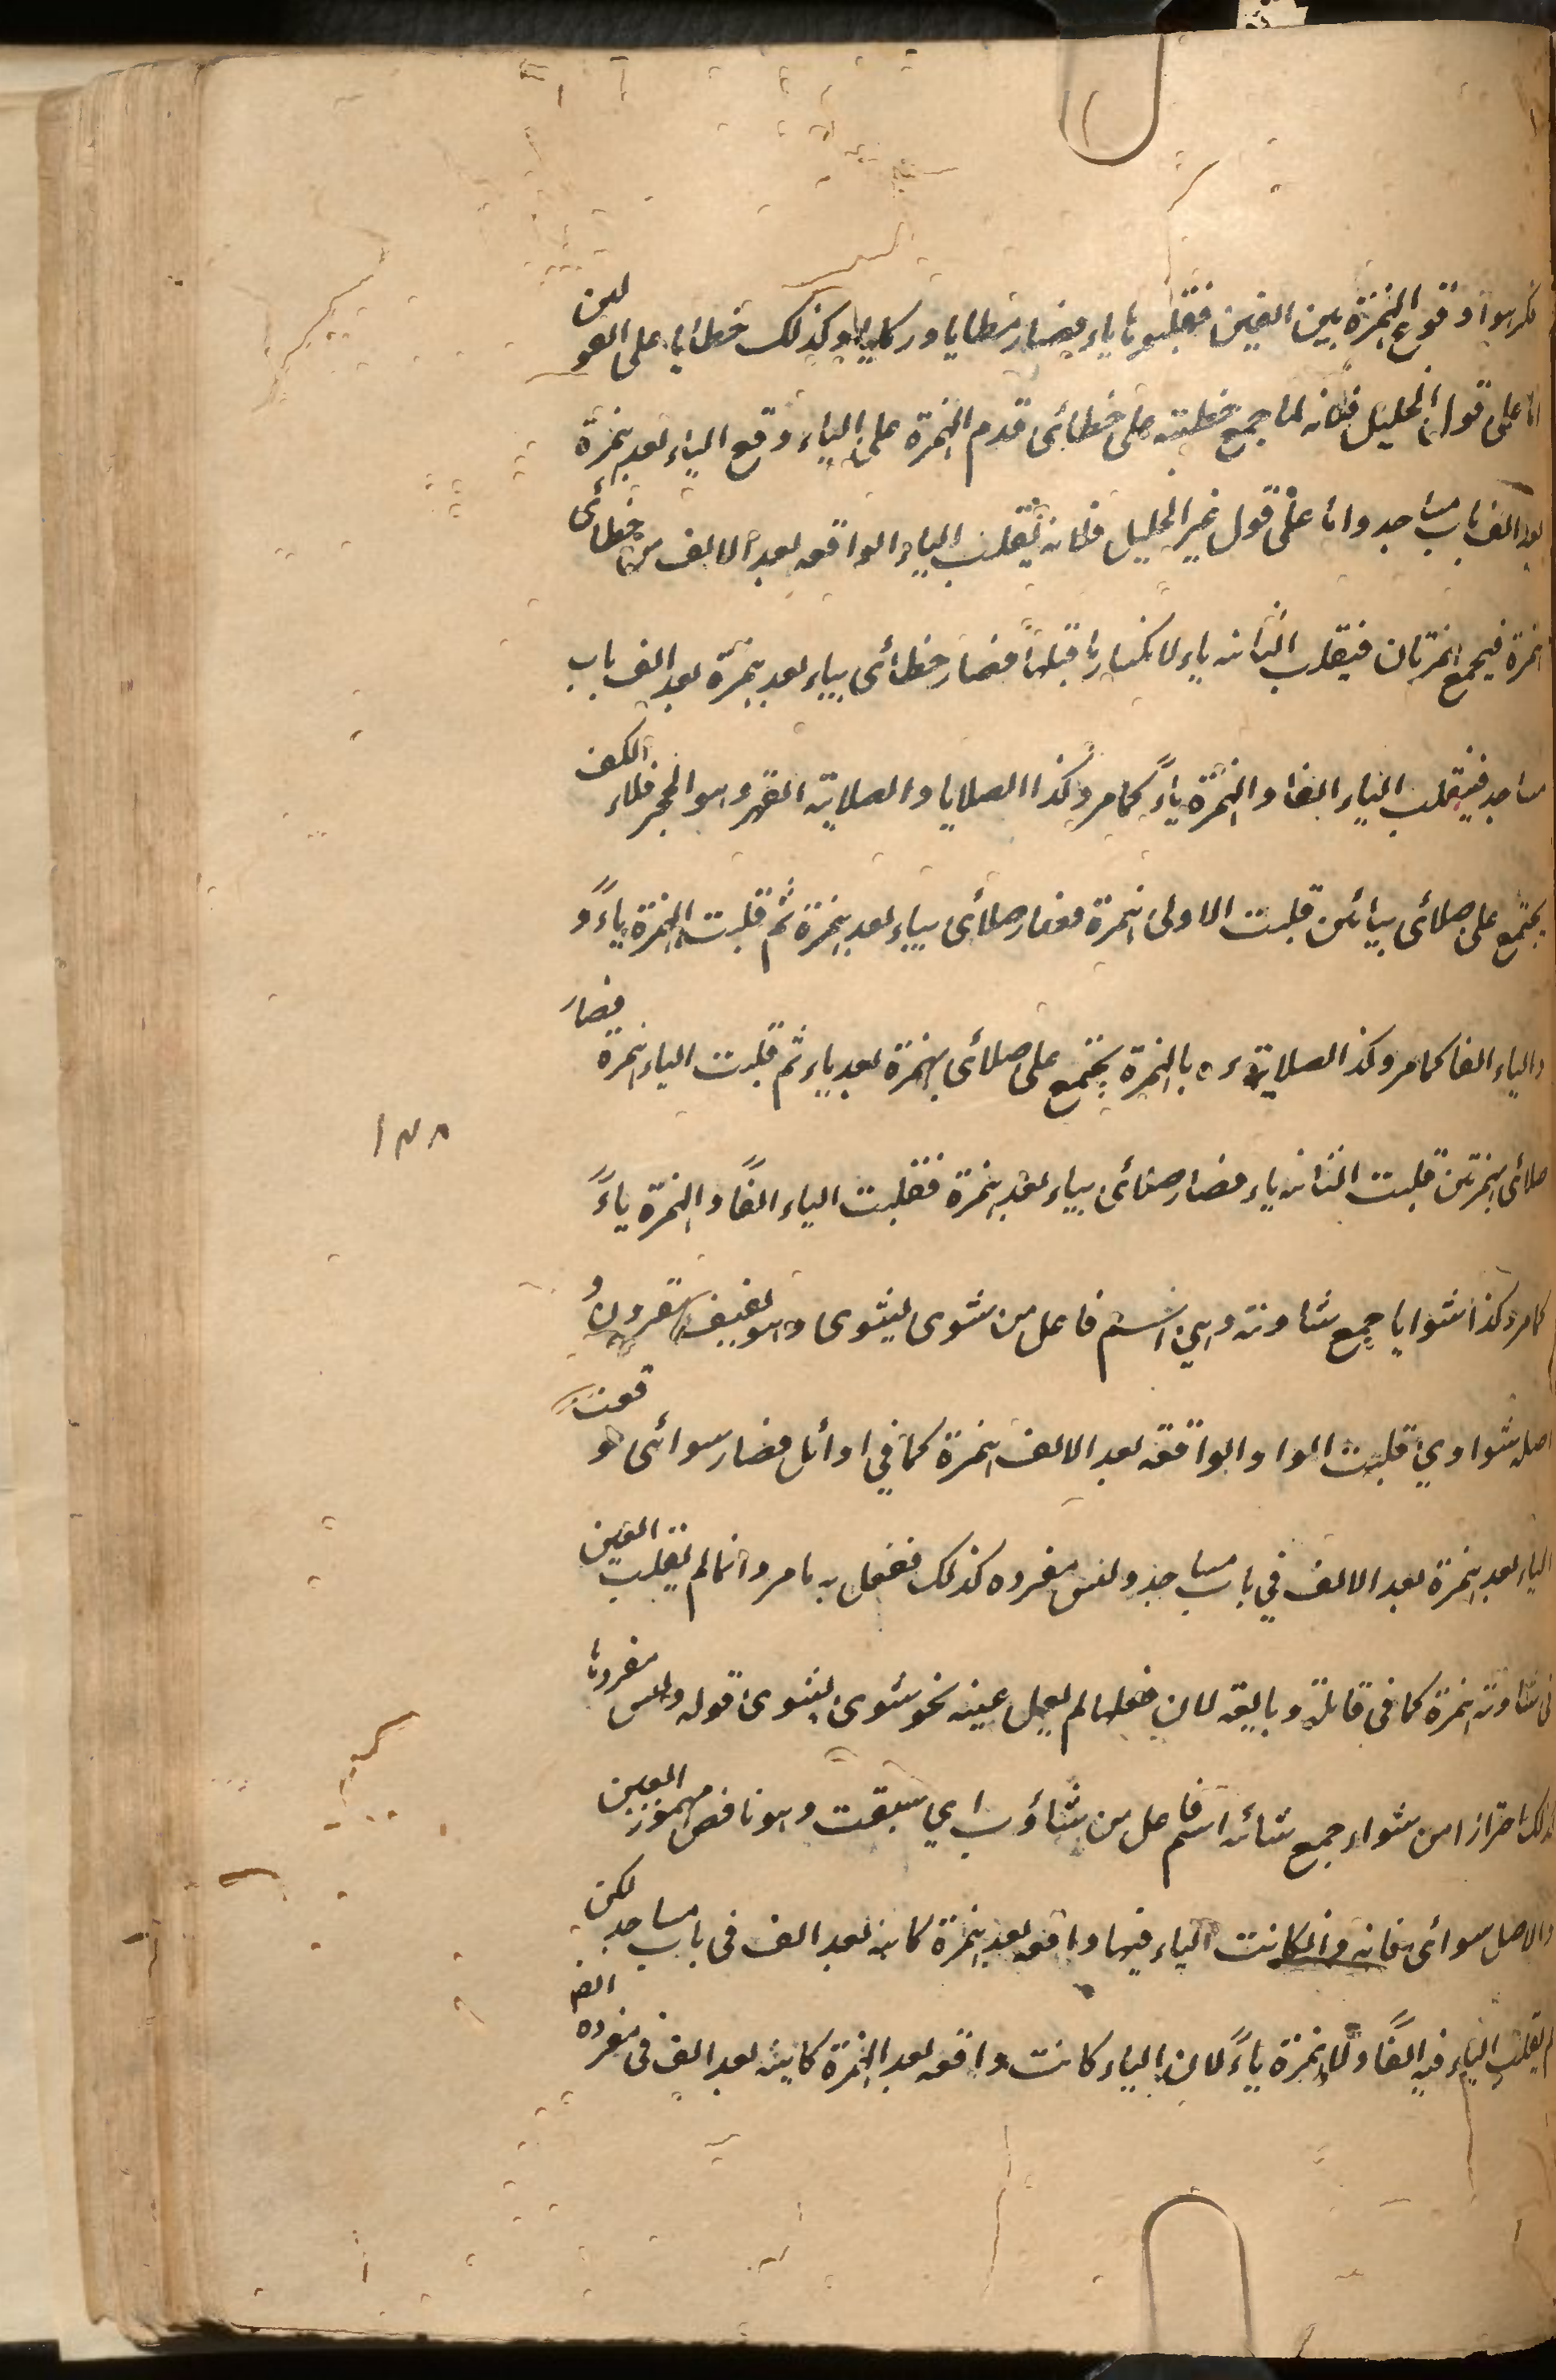 كرهوا وقوع الهمزة بين الفين فقلبوها ياء فصار مطايا وركايا وكذلك خطايا على القولين
اما على قول الخليل فلانه لما جمع خطيئة على خطائى قدم الهمزة على الياء وقع الياء بعد همزة
بعد الف باب مساجد واما على قول غير الخليل فلانه يقلب الياء الواقعه بعد الالف من خطائى
همزة فيجمع همزتان فيقلب الثانيه ياء لانكسار ما قبلها فصار خطائى بياء بعد همزة بعد الف باب
مساجد فيقلب الياء الفا والهمزة ياءً كما مر وكذا الصلايا والصلاية الفهر وهو الحجر ملاء الكف
يجتمع على صلائى بيائين قلبت الاولى همزة فصار صلائى بياء بعد همزة ثم قلبت الهمزة ياءً و
والياء الفا كما مر وكذا الصلاية ءه بالهمزة يجتمع على صلائى بهمزة بعد ياء ثم قلبت الياء همزة فصار
صلائى بهمزتين قلبت الثانيه ياء فصار صلائى بياء بعد همزة فقلبت الياء الفًا والهمزة ياءً
كما مر وكذا شوايا جمع شاوية وهي اسم فاعل من شوى يشوى وهو لفيف مقرون و
اصله شواوي قلبت الواو الواقعه بعد الالف همزة كما في اوائل فصار شوائى فوقعت
الياء بعد همزة بعد الالف في باب مساجد وليس مفرده كذلك ففعل به ما مر وانما لم يقلب العين
فى شاوية همزة كما فى قائلة وبايعه لان فعلها لم يعل عينه نحو شوى يشوى قوله وليس مفردها
كذلك احترازا من شواء جمع شائه اسم فاعل من شأوت اي سبقت وهو ناقص مهموز العين
والاصل شوائى فانه وان كانت الياء فيها واقعه بعد همزة كاينه بعد الف فى باب مساجد لكن
لم يقلب الياء فيه الفًا ولا الهمزة ياءً لان الياء كانت واقعه بعد الهمزة كاينه بعد الف فى مفرده
١٣٨